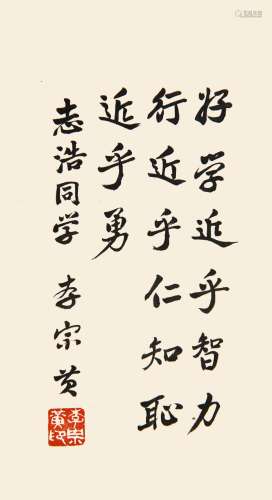 好学近乎智力
行近乎仁知恥
近乎勇
志浩同学 李宗黄
李宗黄印